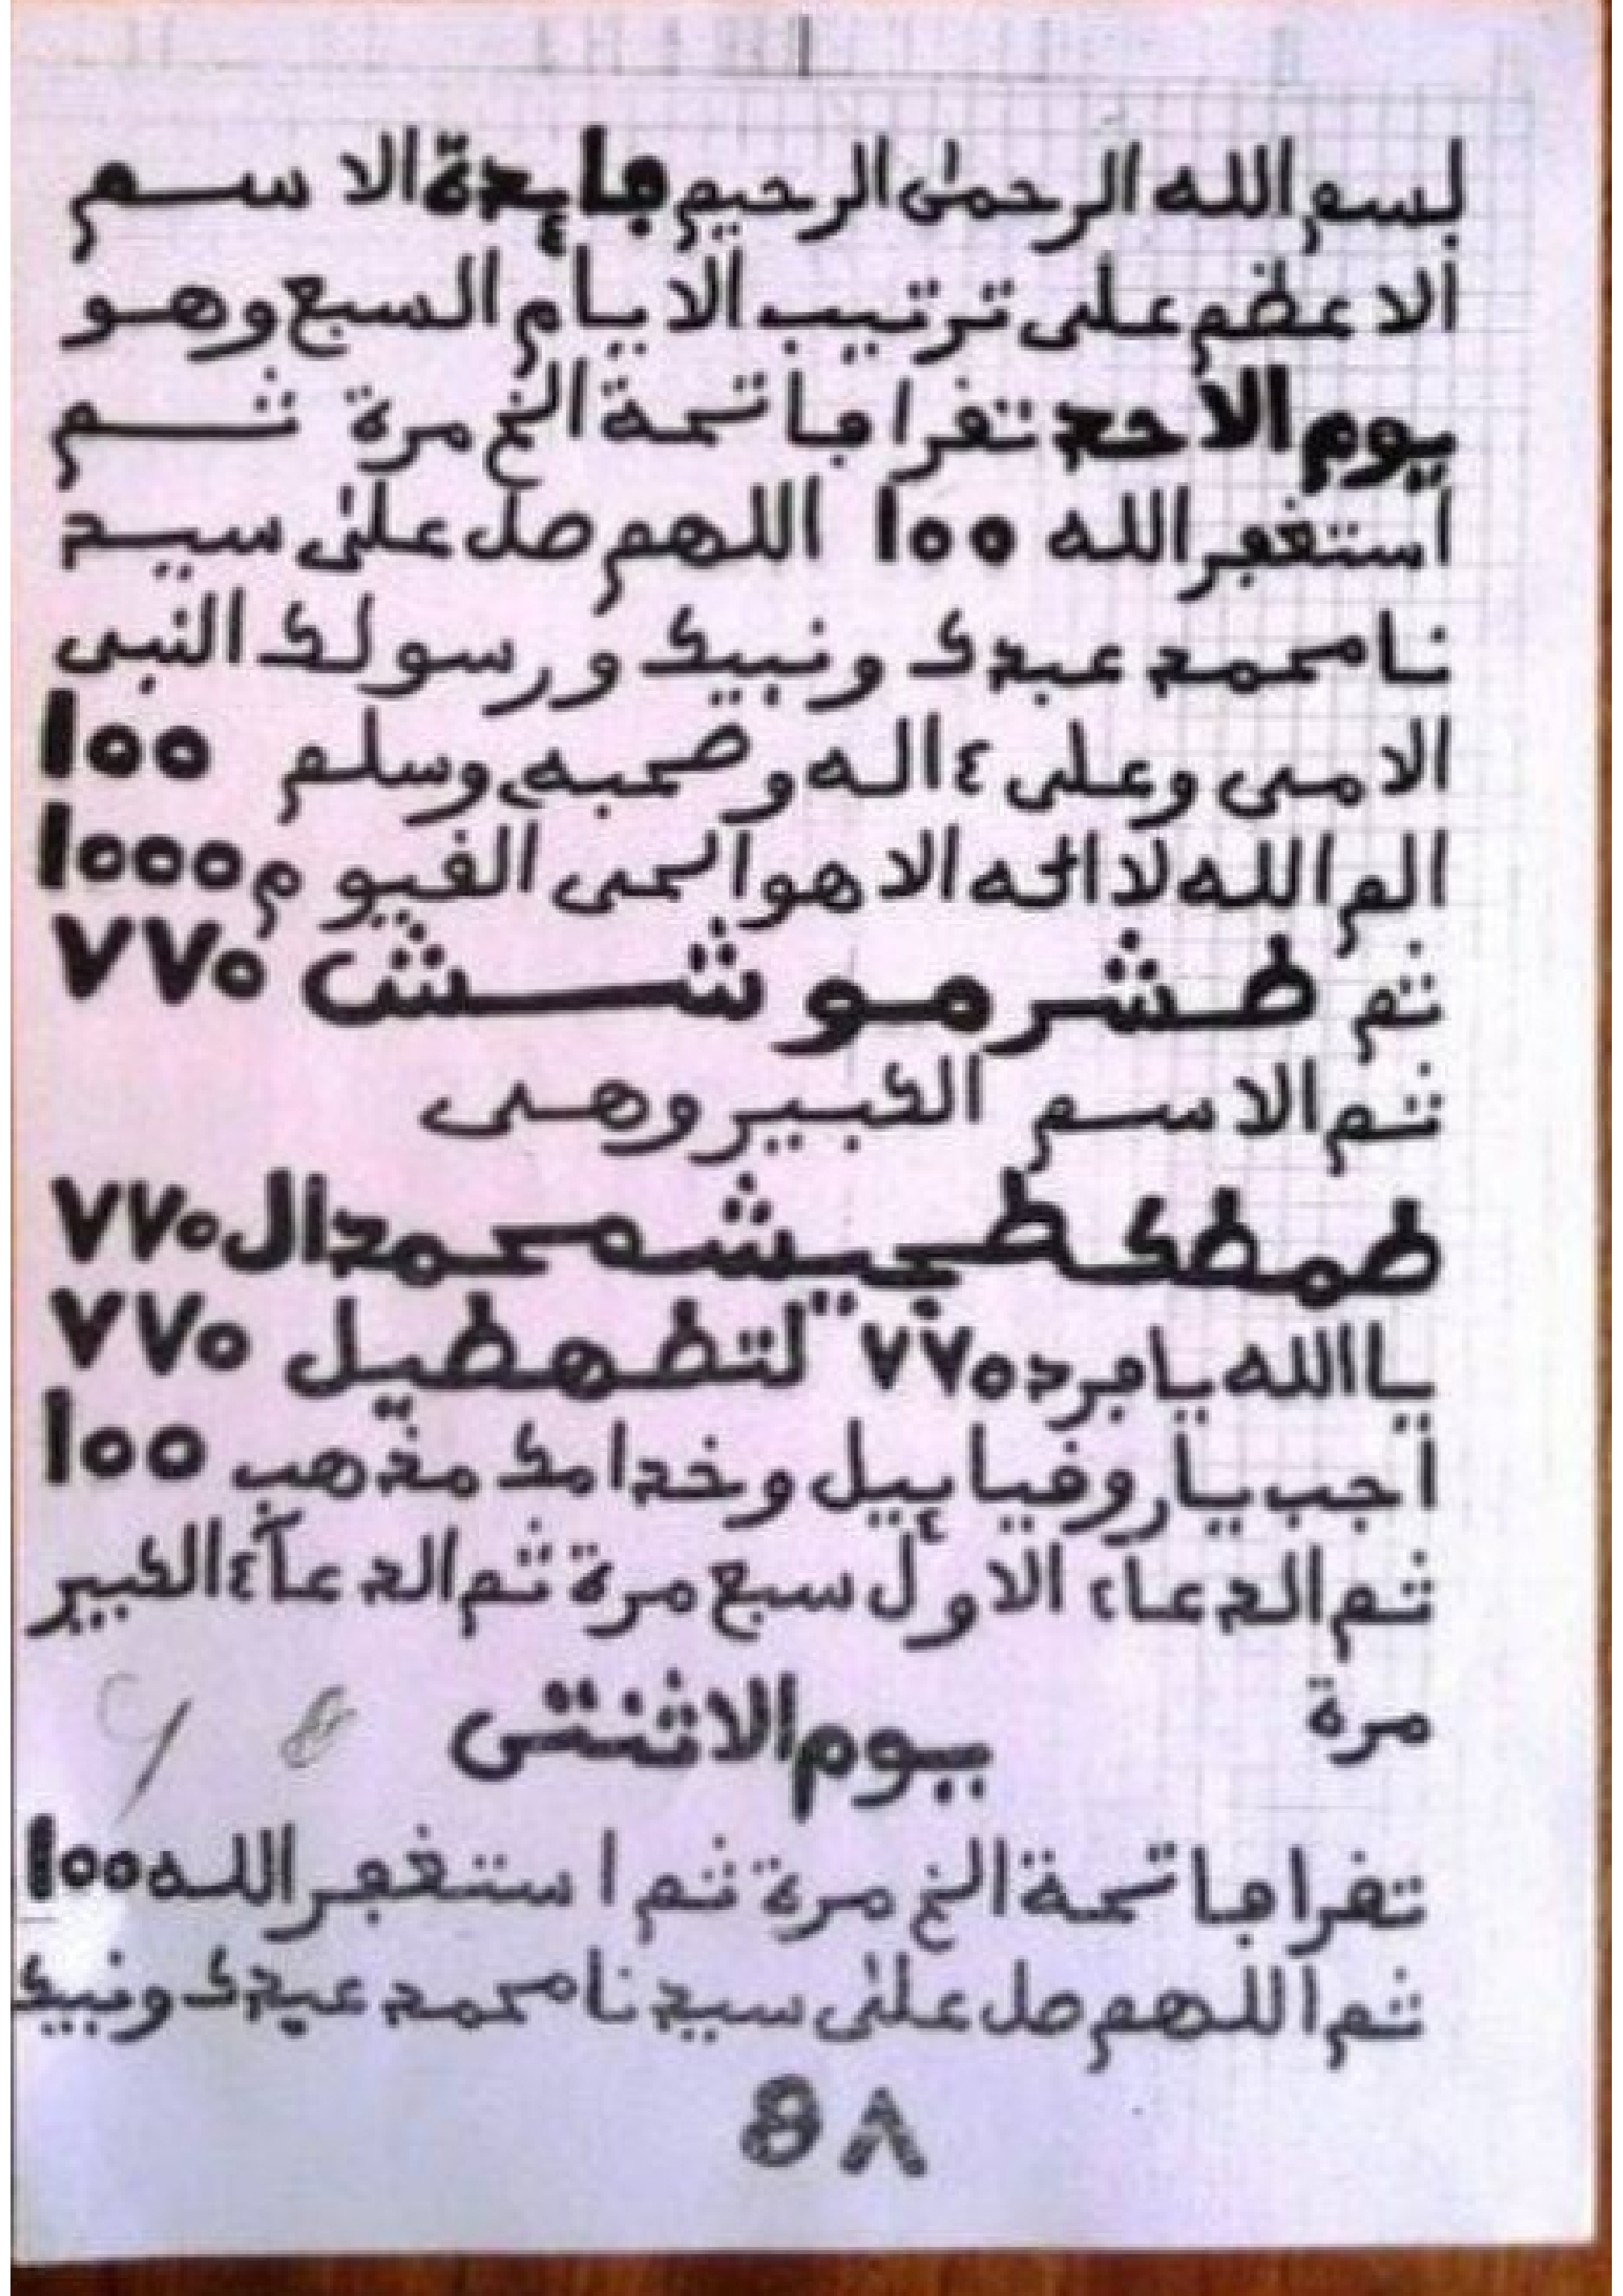 بسم الله الرحمن الرحيم فايدة الاسم
الاعظم على ترتيب الايام السبع وهو
يوم الاحد تقرا فاتحة الخ مرة ثم
استغفر الله 100 اللهم صل على سيد
نا محمد عبدك ونبيك ورسولك النبى
الامى وعلى ءاله وصحبه وسلم 100
الم الله لا اله الا هو الحى القيوم 1000
ثم طشرموشش ٧٧٥
ثم الاسم الكبير وهى
طمطكطجيشمحمدال ٧٧٥
يا الله يا فرد ٧٧٥ لتطهطيل ٧٧٥
اجب يا روقياييل وخدامك مذهب 100
ثم الدعاء الاول سبع مرة ثم الدعاء الكبير
مرة
يوم الاثنتى
تقرا فاتحة الخ مرة ثم استغفر الله 100
ثم اللهم صل على سيدنا محمد عبدك ونبيك
8 ٨